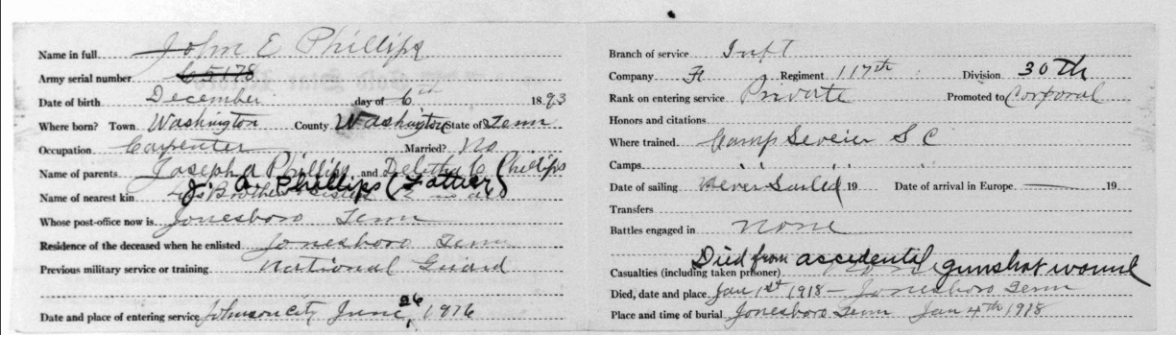 Name in full John E Phillips
Army serial number 65178
Date of birth December day of 6th 1893
Where born? Town Washington County Washington State of Tenn
Occupation Carpenter Married? No
Name of parents Joseph A Phillips and Phillips
Name of nearest kin J. A. Phillips (Father)
Whose post-office now is Jonesboro Tenn
Residence of the deceased when he enlisted Jonesboro Tenn
Previous military service or training National Guard
Date and place of entering service Johnson City June 26, 1916
Branch of service Inft
Company Regiment 117th Division 30th
Rank on entering service Private Promoted to Corporal
Honors and citations
Where trained Camp Seveier S C
Camps
Date of sailing Never Sailed 19 Date of arrival in Europe — 19
Transfers
Battles engaged in None
Casualties (including taken prisoner) Died from accedental gunshot wound
Died, date and place Jan 1st 1918 – Jonesboro Tenn
Place and time of burial Jonesboro Tenn Jan 4th 1918